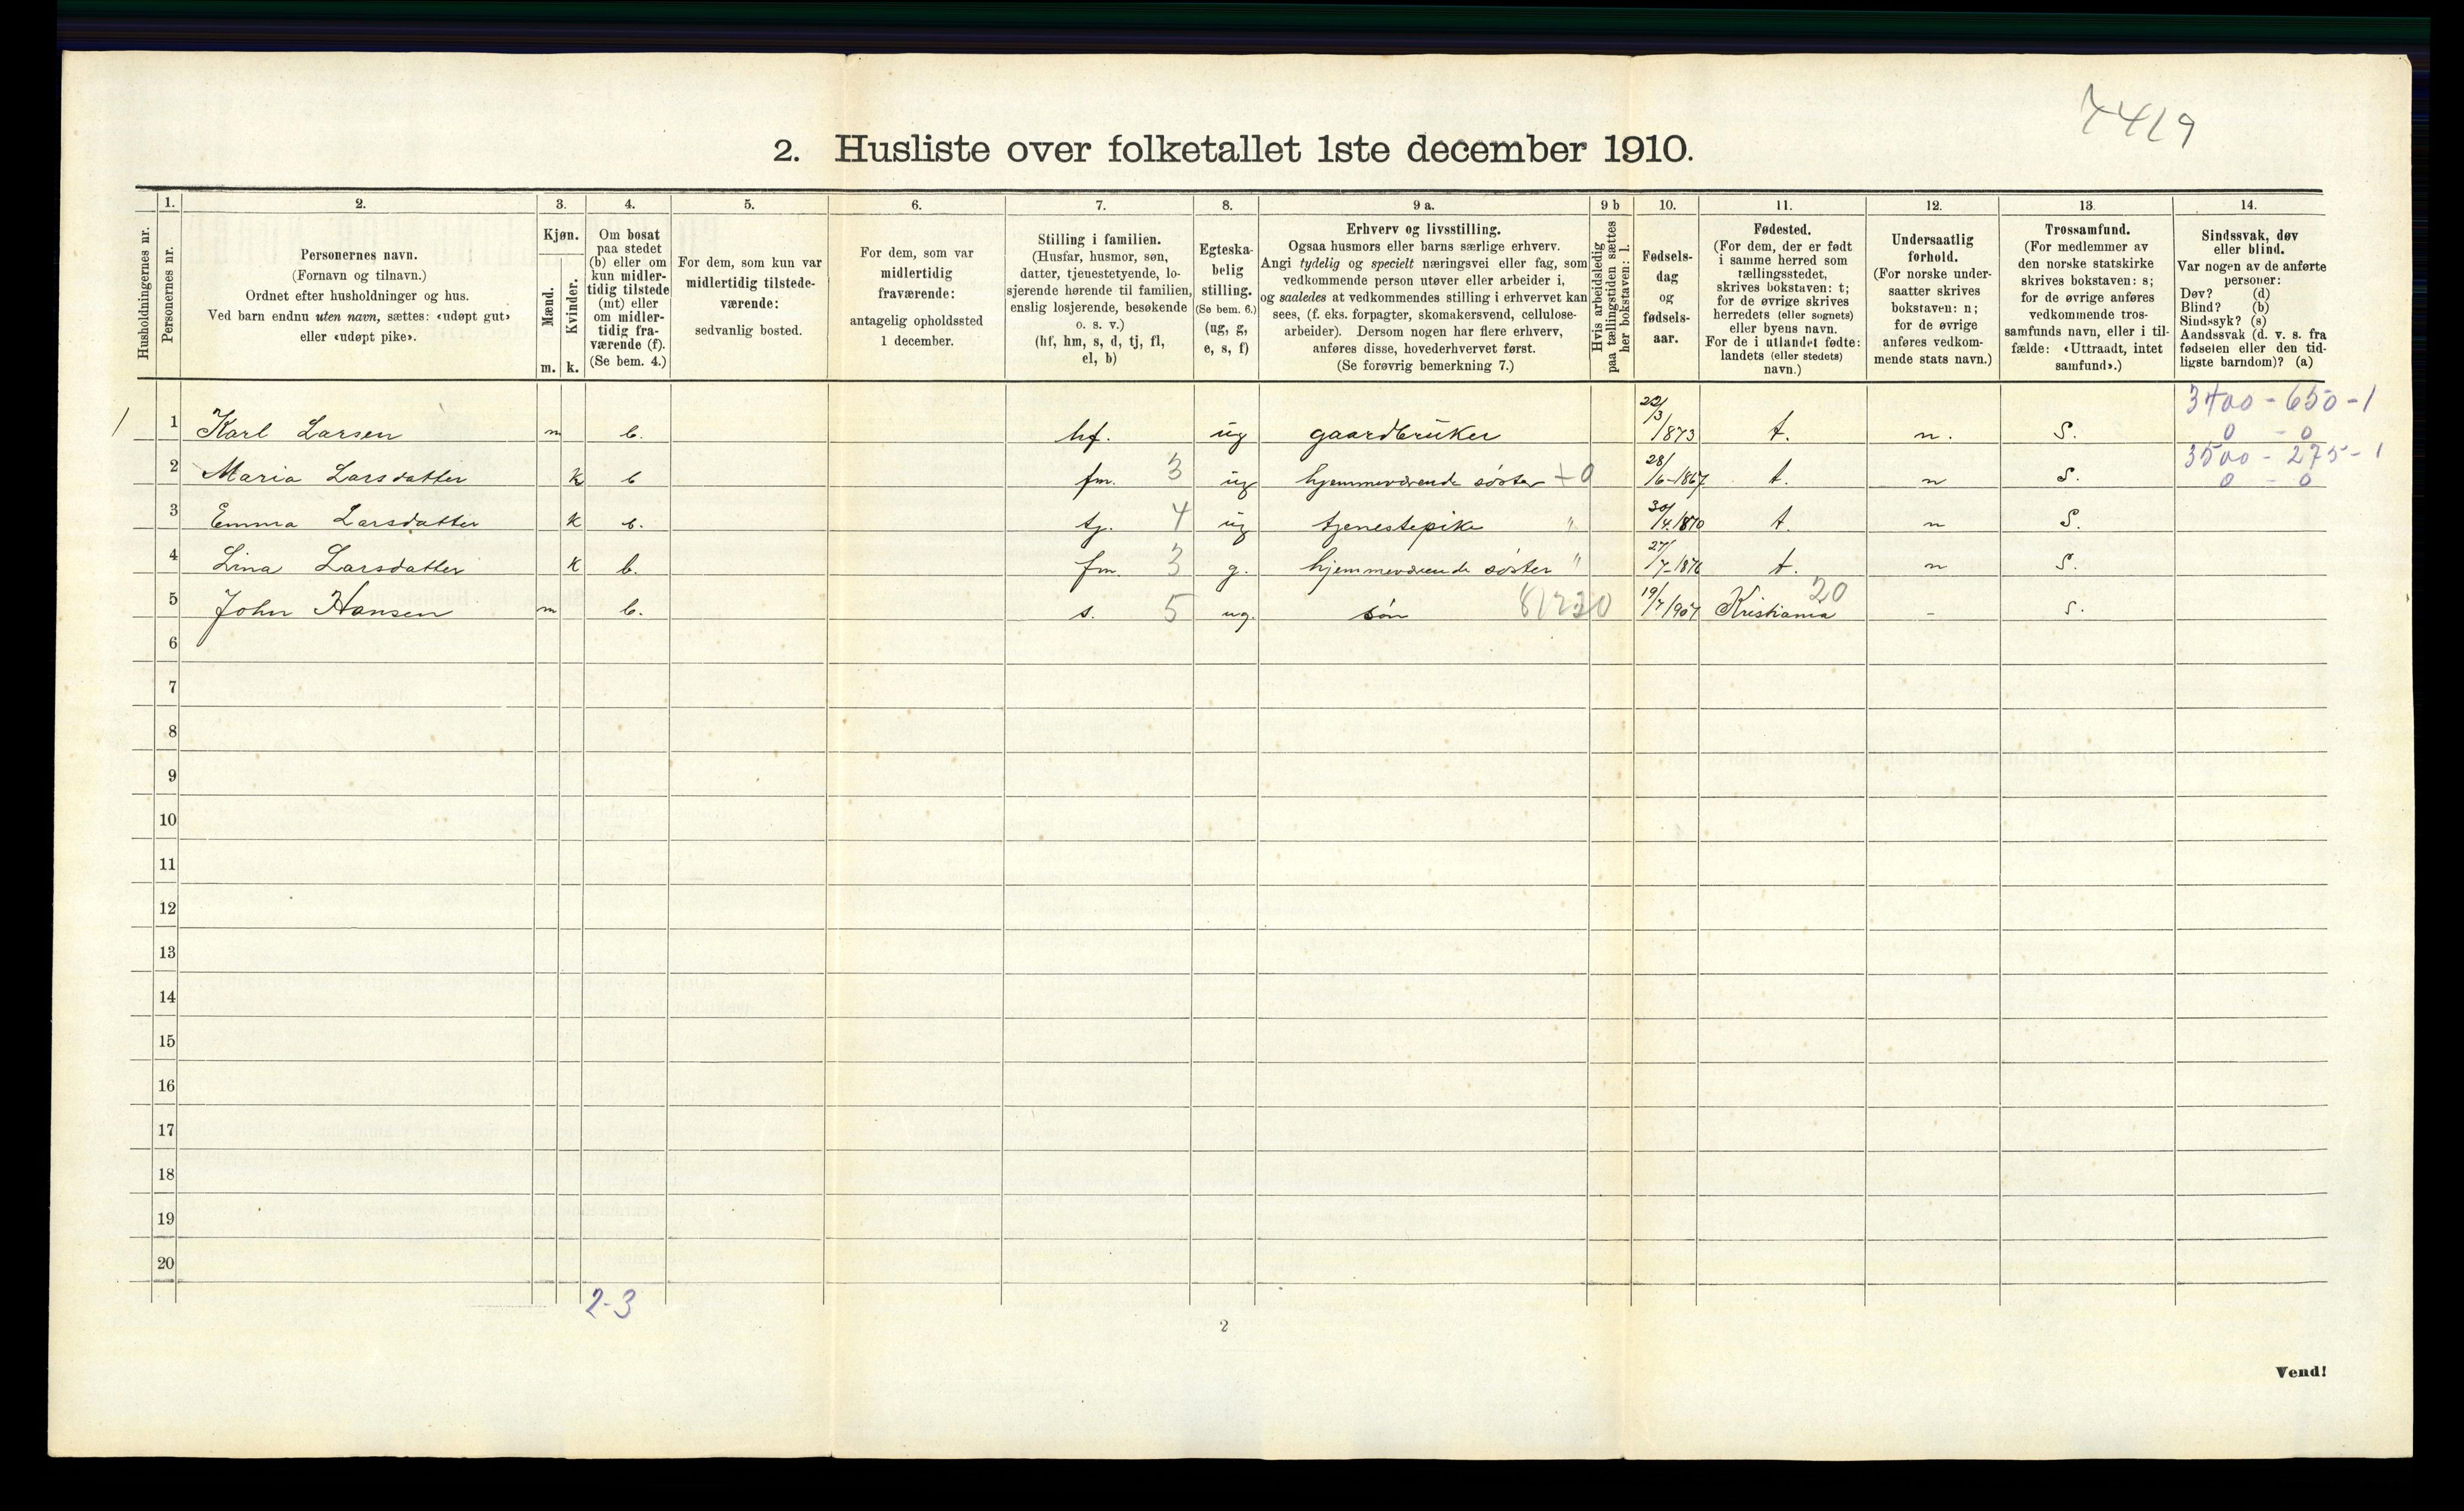 7419
2. Husliste over folketallet 1ste december 1910.
Husholdningernes nr.
1.
Personernes nr.
2.
Personernes navn.
(Fornavn og tilnavn.)
Ordnet efter husholdninger og hus.
Ved barn endnu uten navn, sættes: «udøpt gut»
eller «udøpt pike».
3.
Kjøn.
Mænd.
Kvinder.
m. k.
4.
Om bosat
paa stedet
(b) eller om
kun midler-
tidig tilstede
(mt) eller
om midler-
tidig fra-
værende (f).
(Se bem. 4.)
5.
For dem, som kun var
midlertidig tilstede-
værende:
sedvanlig bosted.
6.
For dem, som var
midlertidig
fraværende:
antagelig opholdssted
1 december.
7.
Stilling i familien.
(Husfar, husmor, søn,
datter, tjenestetyende, lo-
sjerende hørende til familien,
enslig losjerende, besøkende
o. s. v.)
(hf, hm, s, d, tj, fl,
el, b)
8.
Egteska-
belig
stilling.
(Se bem. 6.)
(ug, g,
e, s, f)
9 a.
Erhverv og livsstilling.
Ogsaa husmors eller barns særlige erhverv.
Angi tydelig og specielt næringsvei eller fag, som
vedkommende person utøver eller arbeider i,
og saaledes at vedkommendes stilling i erhvervet kan
sees, (f. eks. forpagter, skomakersvend, cellulose-
arbeider). Dersom nogen har flere erhverv,
anføres disse, hovederhvervet først.
(Se forøvrig bemerkning 7.)
9 b
Hvis arbeidsledig
paa tællingstiden sættes
her bokstaven: l.
10.
Fødsels-
dag
og
fødsels-
aar.
11.
Fødested.
(For dem, der er født
i samme herred som
tællingsstedet,
skrives bokstaven: t;
for de øvrige skrives
herredets (eller sognets)
eller byens navn.
For de i utlandet fødte:
landets (eller stedets)
navn.)
12.
Undersaatlig
forhold.
(For norske under-
saatter skrives
bokstaven: n;
for de øvrige
anføres vedkom-
mende stats navn.)
13.
Trossamfund.
(For medlemmer av
den norske statskirke
skrives bokstaven: s;
for de øvrige anføres
vedkommende tros-
samfunds navn, eller i til-
fælde: «Uttraadt, intet
samfund».)
14.
Sindssvak, døv
eller blind.
Var nogen av de anførte
personer:
Døv? (d)
Blind? (b)
Sindssyk? (s)
Aandssvak (d. v. s. fra
fødselen eller den tid-
ligste barndom)? (a)
3400 - 650 - 1
1 1 Karl Larsen m b. hf. ug gaardbruker 22/3/1873 t. n. S. 0 - 0
3500 - 275 - 1
2 Maria Larsdatter k b fm. 3 ug hjemmeværende søster + 0 28/6-1867 t. n S. 0 - 0
3 Emma Larsdatter k b. tj. 4 ug tjenestepike " 30/4.1870 t. n S.
4 Lina Larsdatter k b. fm. 3 g. hjemmeværende søster " 27/7-1876 t. n S.
5 John Hansen m b. s. 5 ug. søn 19/7 1907 Kristiania 20 - S.
6
7
8
9
10
11
12
13
14
15
16
17
18
19
20
2-3
2
Vend!